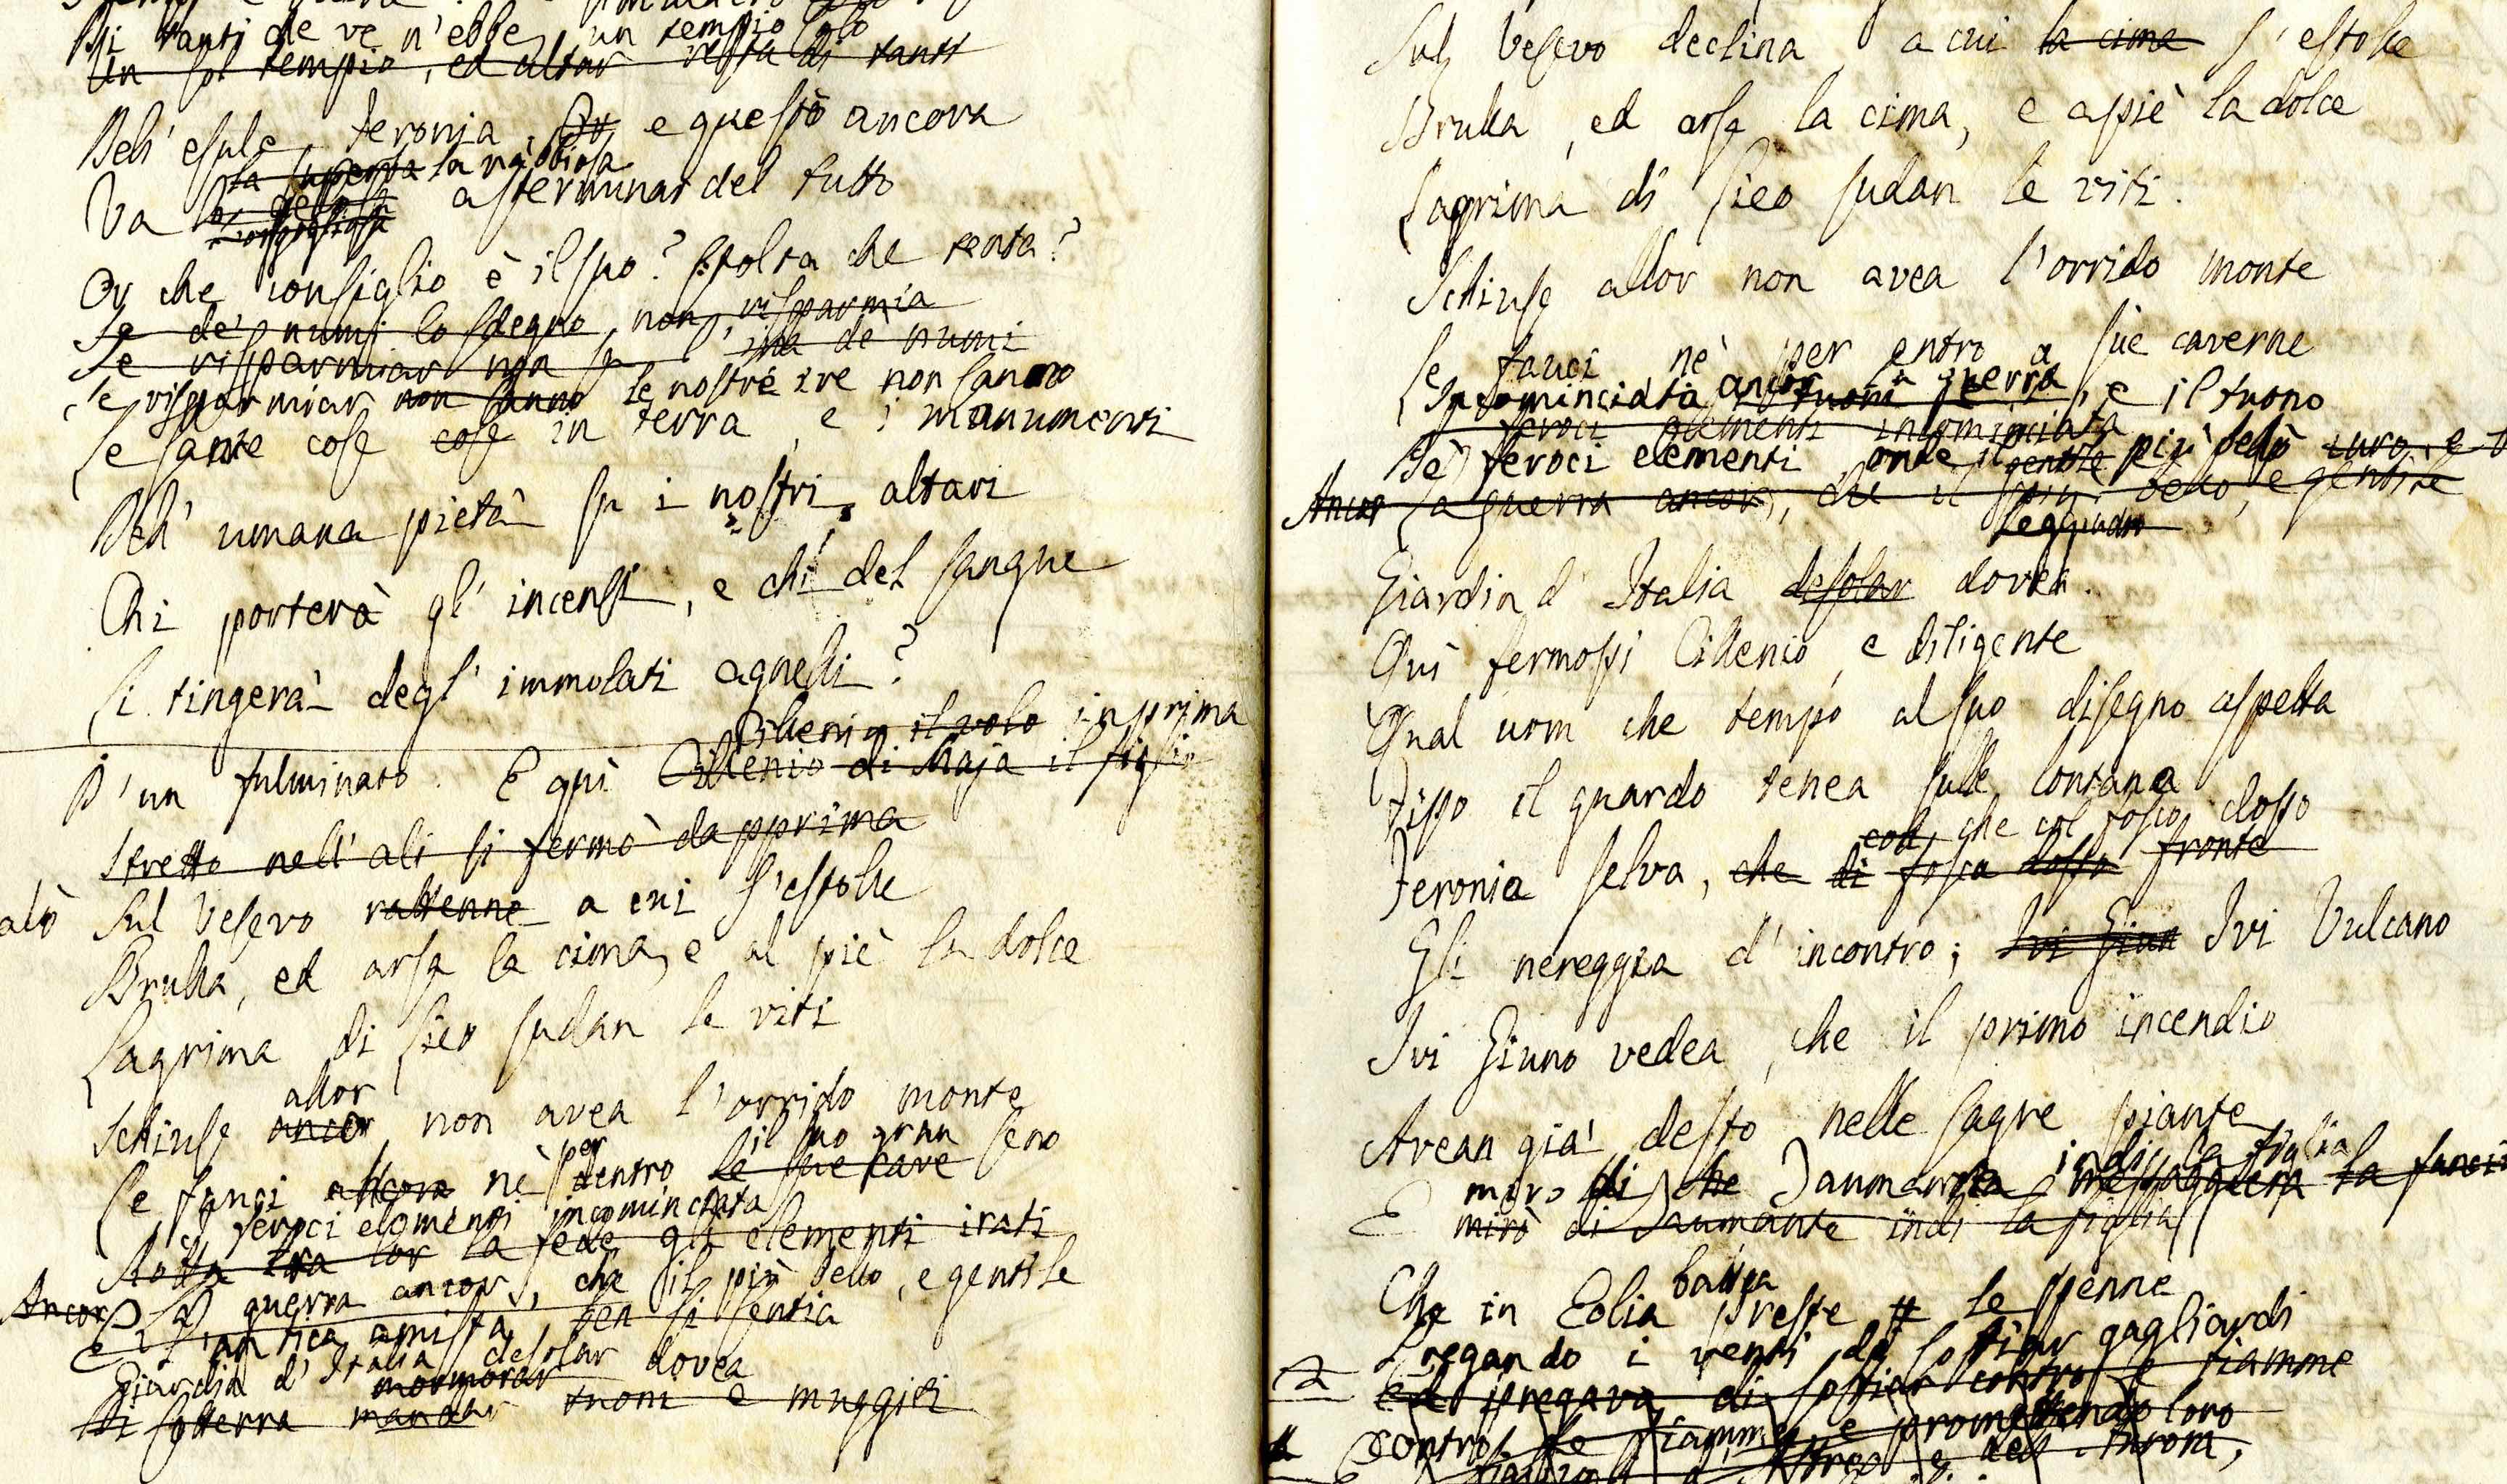 Di tanti che ve n'ebbe, un tempio solo
Un sol tempio, ed altar resta di tanti
Dell' esule Feronia, e questo ancora
la superba la rabbiosa
Va la gelosa a sterminar del tutto
orgogliosa
Or che consiglio è il suo? Stolta che tenta?
Se de' numi lo sdegno non risparmia
Se risparmiar non sa l'ira de numi
Se risparmiar non sanno le nostre ire non sanno
Le sante cose cose in terra, e i monumenti
Dell' umana pietà su i nostri altari
Chi porterà gl' incensi, e chi del sangue
Si tingerà degl' immolati agnelli?
Cillenio il volo in prima
D'un fulminato. E quì Cillenio di Maja il figlio
Stretto nell' ali si fermò da pprima
calò Sul Vesevo rattenne a cui s'estolle
Brulla, ed arsa la cima, e al piè la dolce
Lagrima di Lieo sudan le viti
allor
Schiuse ancor non avea l'orrido monte
per il suo gran
Le fauci ancora nè dentro le sue cave seno
feroci elementi incominciata
Rotta tra lor la fede gli elementi irati
Ancor La guerra ancor, che il più bello, e gentile
e l'antica amistà, ben si sentia
Giardin d' Italia desolar dovea
mormorar
Di sotterra mandar tuoni e muggiti
Sul Vesevo declina a cui la cima s'estolle
Brulla, ed arsa la cima, e a piè la dolce
Lagrima di Lieo sudan le viti.
Schiuse allor non avea l'orrido monte
Le fauci nè per entro a sue caverne
Incominciata ancor tuoni guerra, e il tuono
feroci elementi incominciata
De' feroci elementi onde il gentile più bello
Ancor La guerra ancor, che il più bello, e gentile
leggiadro
Giardin d' Italia desolar dovea.
Quì fermossi Cillenio, e diligente
Qual uom che tempo al suo disegno aspetta
Fisso il guardo tenea sulle lontana
che col fosco dosso
Feronia selva, che di fosca dosso fronte
Gli nereggia d' incontro; Ivi Giun Ivi Vulcano
Ivi Giuno vedea, che il primo incendio
Avean già desto nelle sagre piante
indi la figlia
mirò di che Taumanzia messaggiera la
E mirò di Taumante indi la figlia
balza
Che in Eolia preste le penne
Pregando i venti di soffiar gagliardi
Ed pregava di soffiar contro le fiamme
Contro le fiamme, e promettendo loro